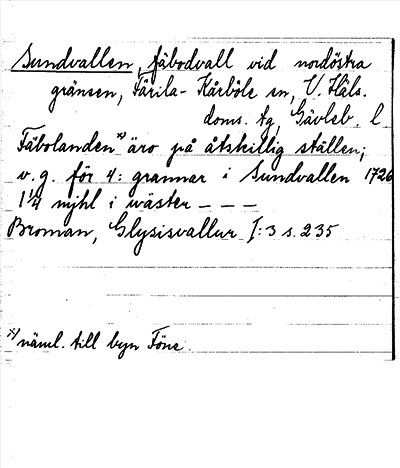 Sundvallen, fäbodvall vid nordöstra
gränsen, Färila-Kårböle sn, V. Häls.
doms. tg, Gävleb. l
Fäbolanden x) äro på åtskillig ställen;
v.g. för 4: grannar i Sundvallen 1726
1 1/4 myhl i wäster - - -
Broman, Glysisvallur I:3 s. 235
x) näml. till byn Föne.